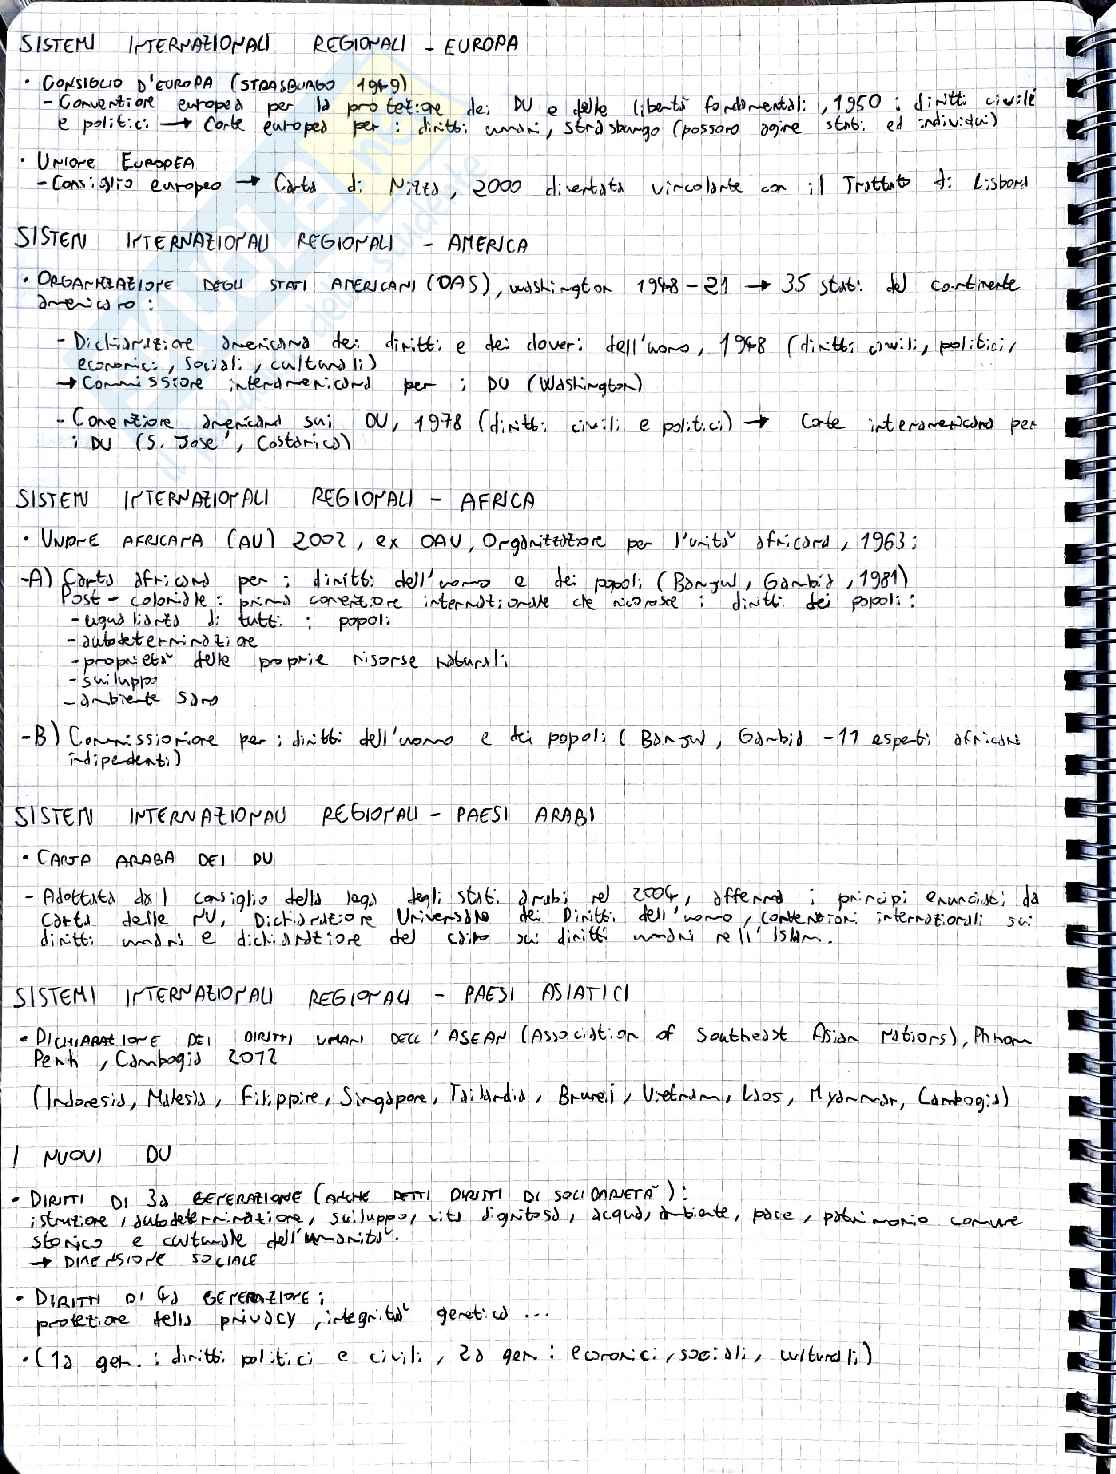 SISTEMI INTERNAZIONALI REGIONALI - EUROPA
• CONSIGLIO D'EUROPA (STRASBURGO 1949)
- Convenzione europea per la protezione dei DU e delle libertà fondamentali, 1950: diritti civili
e politici → Corte europea per i diritti umani, Strasburgo (possono agire stati ed individui)
• UNIONE EUROPEA
- Consiglio europeo → Carta di Nizza, 2000 diventata vincolante con il Trattato di Lisbona
SISTEMI INTERNAZIONALI REGIONALI - AMERICA
• ORGANIZZAZIONE DEGLI STATI AMERICANI (OAS), Washington 1948 - 21 → 35 stati del continente
americano:
- Dichiarazione americana dei diritti e dei doveri dell'uomo, 1948 (diritti civili, politici,
economici, sociali, culturali)
→ Commissione interamericana per i DU (Washington)
- Convenzione americana sui DU, 1978 (diritti civili e politici) → Corte interamericana per
i DU (S. José, Costarica)
SISTEMI INTERNAZIONALI REGIONALI - AFRICA
• UNIONE AFRICANA (AU) 2002, ex OAU, Organizzazione per l'unità africana, 1963:
-A) Carta africana per i diritti dell'uomo e dei popoli (Banjul, Gambia, 1981)
Post-coloniale: prima convenzione internazionale che riconosce i diritti dei popoli:
- uguaglianza di tutti i popoli
- autodeterminazione
- proprietà delle proprie risorse naturali
- sviluppo
- ambiente sano
-B) Commissione per i diritti dell'uomo e dei popoli (Banjul, Gambia - 11 esperti africani
indipendenti)
SISTEMI INTERNAZIONALI REGIONALI - PAESI ARABI
• CARTA ARABA DEI DU
- Adottata dal consiglio della lega degli stati arabi nel 2004, afferma i principi enunciati da
carta delle NU, Dichiarazione Universale dei Diritti dell'uomo, convenzioni internazionali sui
diritti umani e dichiarazione del cairo sui diritti umani nell'Islam.
SISTEMI INTERNAZIONALI REGIONALI - PAESI ASIATICI
• DICHIARAZIONE DEI DIRITTI UMANI DELL'ASEAN (Association of Southeast Asian Nations), Phnom
Penh, Cambogia 2012
(Indonesia, Malesia, Filippine, Singapore, Tailandia, Brunei, Vietnam, Laos, Myanmar, Cambogia)
I NUOVI DU
• DIRITTI DI 3a GENERAZIONE (ANCHE DETTI DIRITTI DI SOLIDARIETÀ):
istruzione, autodeterminazione, sviluppo, vita dignitosa, acqua, ambiente, pace, patrimonio comune
storico e culturale dell'umanità.
→ DIMENSIONE SOCIALE
• DIRITTI DI 4a GENERAZIONE:
protezione della privacy, integrità genetica ...
• (1a gen.: diritti politici e civili, 2a gen: economici, sociali, culturali)